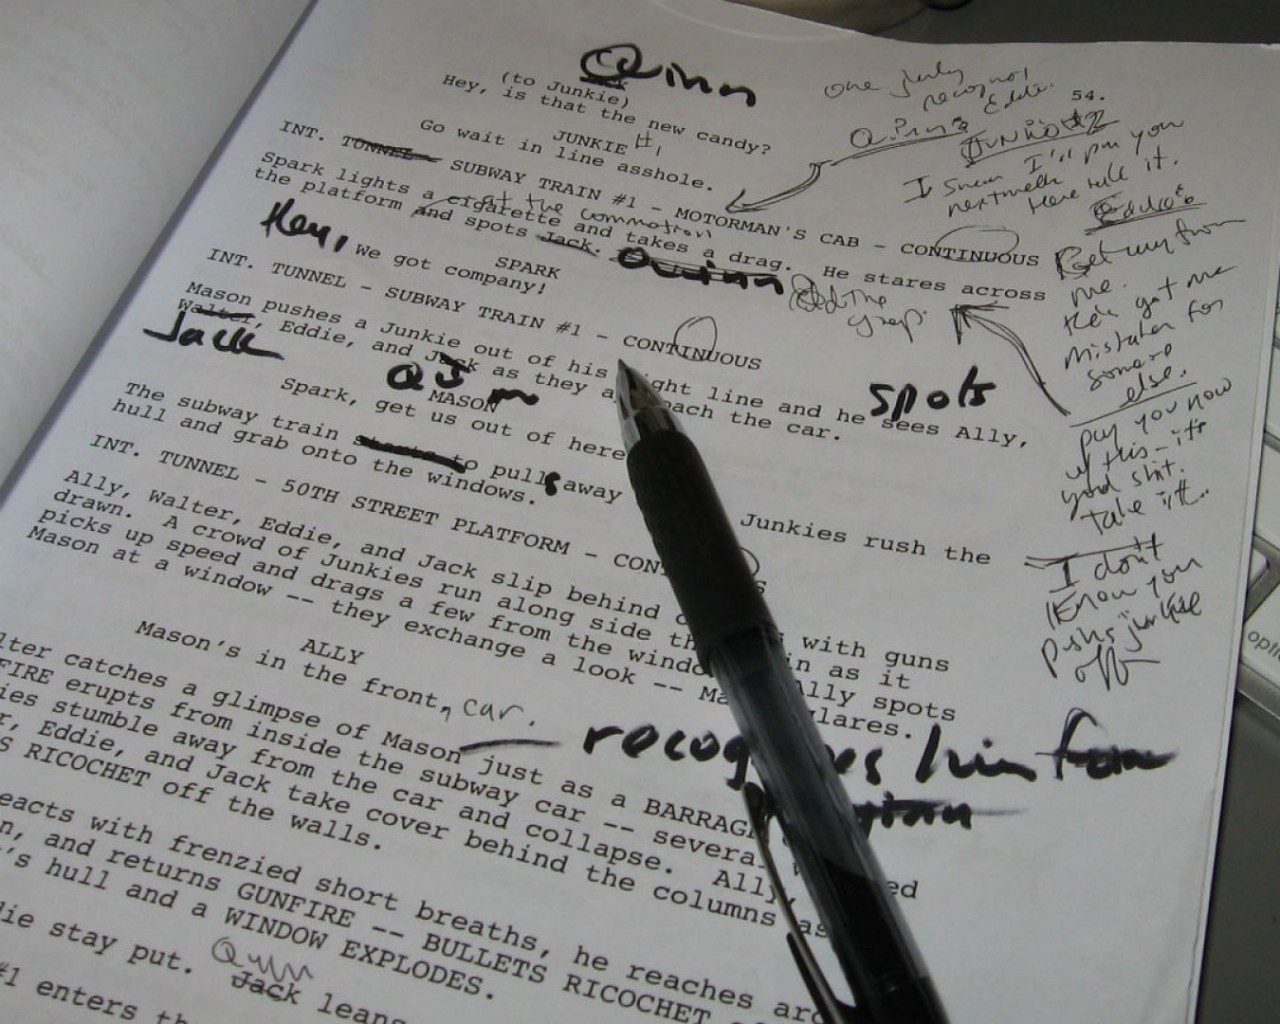 Quinn
(to Junkie)
Hey, is that the new candy?
54.
JUNKIE #1
Go wait in line asshole.
INT. TUNNEL SUBWAY TRAIN #1 - MOTORMAN'S CAB - CONTINUOUS
Spark lights a cigarette and takes a drag. He stares across
at the commotion
the platform and spots Jack. Quinn
SPARK
Hey, We got company!
INT. TUNNEL - SUBWAY TRAIN #1 - CONTINUOUS
Mason pushes a Junkie out of his ight line and he sees Ally,
spots
Walter, Eddie, and Jack as they a oach the car.
Jack
MASON
Spark, get us out of here
The subway train starts to pulls away Junkies rush the
hull and grab onto the windows.
INT. TUNNEL - 50TH STREET PLATFORM - CON S
Ally, Walter, Eddie, and Jack slip behind with guns
drawn. A crowd of Junkies run along side th in as it
picks up speed and drags a few from the windo Ally spots
Mason at a window -- they exchange a look -- Ma glares.
ALLY
Mason's in the front, car.
lter catches a glimpse of Mason just as a BARRAG
recog es him from
FIRE erupts from inside the subway car -- severa
ies stumble away from the car and collapse. Ally, ed
r, Eddie, and Jack take cover behind the columns as
S RICOCHET off the walls.
eacts with frenzied short breaths, he reaches aro
n, and returns GUNFIRE -- BULLETS RICOCHET
's hull and a WINDOW EXPLODES.
die stay put. Quinn
Jack leans
#1 enters th
one
Eddie.
Junkie #2
I I'll pay you
next week
take it.
Eddie
Get away from
me.
got me
mistaken for
someone
else.
pay you now
this - it's
good shit.
take it..
I don't
know you
pushes junkie
off